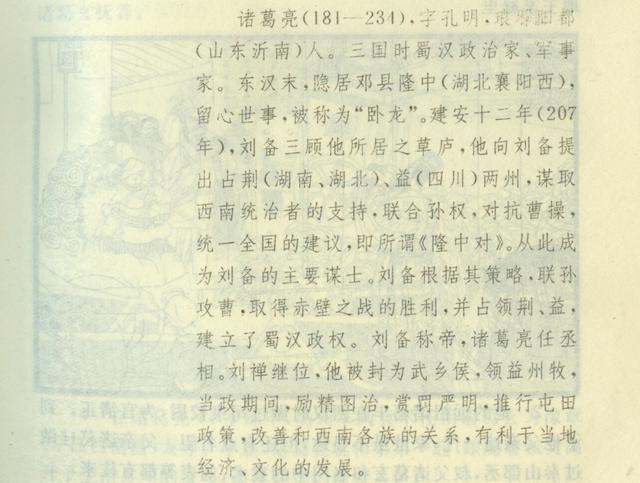 诸葛亮(181—234),字孔明,琅琊阳都
(山东沂南)人。三国时蜀汉政治家、军事
家。东汉末,隐居邓县隆中(湖北襄阳西),
留心世事,被称为“卧龙”。建安十二年(207
年),刘备三顾他所居之草庐,他向刘备提
出占荆(湖南、湖北)、益(四川)两州,谋取
西南统治者的支持,联合孙权,对抗曹操,
统一全国的建议,即所谓《隆中对》。从此成
为刘备的主要谋士。刘备根据其策略,联孙
攻曹,取得赤壁之战的胜利,并占领荆、益,
建立了蜀汉政权。刘备称帝,诸葛亮任丞
相。刘禅继位,他被封为武乡侯,领益州牧,
当政期间,励精图治,赏罚严明,推行屯田
政策,改善和西南各族的关系,有利于当地
经济、文化的发展。